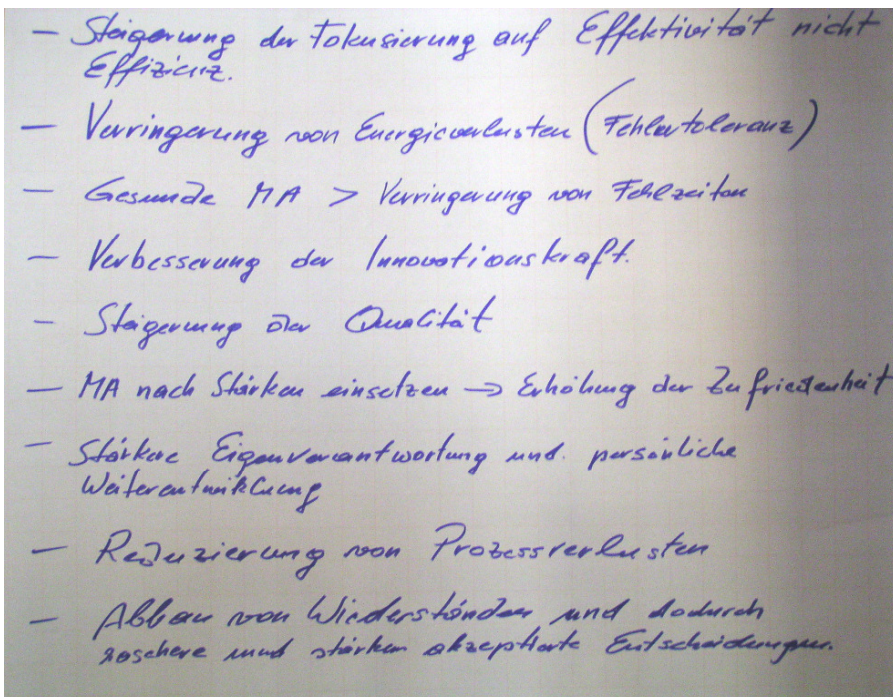 - Steigerung der Fokusierung auf Effektivität nicht
Effizienz.
- Verringerung von Energieverlusten (Fehlertoleranz)
- Gesunde MA > Verringerung von Fehlzeiten
- Verbesserung der Innovationskraft.
- Steigerung der Qualität
- MA nach Stärken einsetzen → Erhöhung der Zufriedenheit
- Stärkere Eigenverantwortung und persönliche
Weiterentwicklung
- Reduzierung von Prozessverlusten
- Abbau von Wiederständen und dadurch
raschere und stärker akzeptierte Entscheidungen.